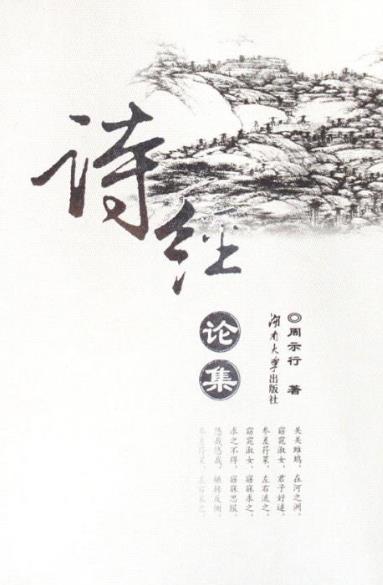 诗经
论集
◎周示行 著
湖南大学出版社
关关雎鸠，在河之洲。
窈窕淑女，君子好逑。
参差荇菜，左右流之。
窈窕淑女，寤寐求之。
求之不得，寤寐思服。
悠哉悠哉，辗转反侧。
参差荇菜，左右采之。